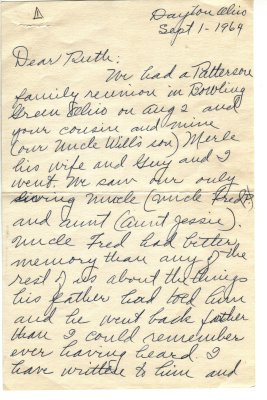 Dayton Ohio
Sept 1 - 1969
Dear Ruth:
We had a Patterson
family reunion in Bowling
Green Ohio on Aug 2 and
your cousin and mine
(our Uncle Will's son) Merle
his wife and Guy and I
went. We saw our only
living Uncle (Uncle Fred)
and aunt (aunt Jessie).
Uncle Fred had better
memory than any of the
rest of us about the things
his father had told him
and he went back father
than I could remember
ever having heard. I
have written to him and